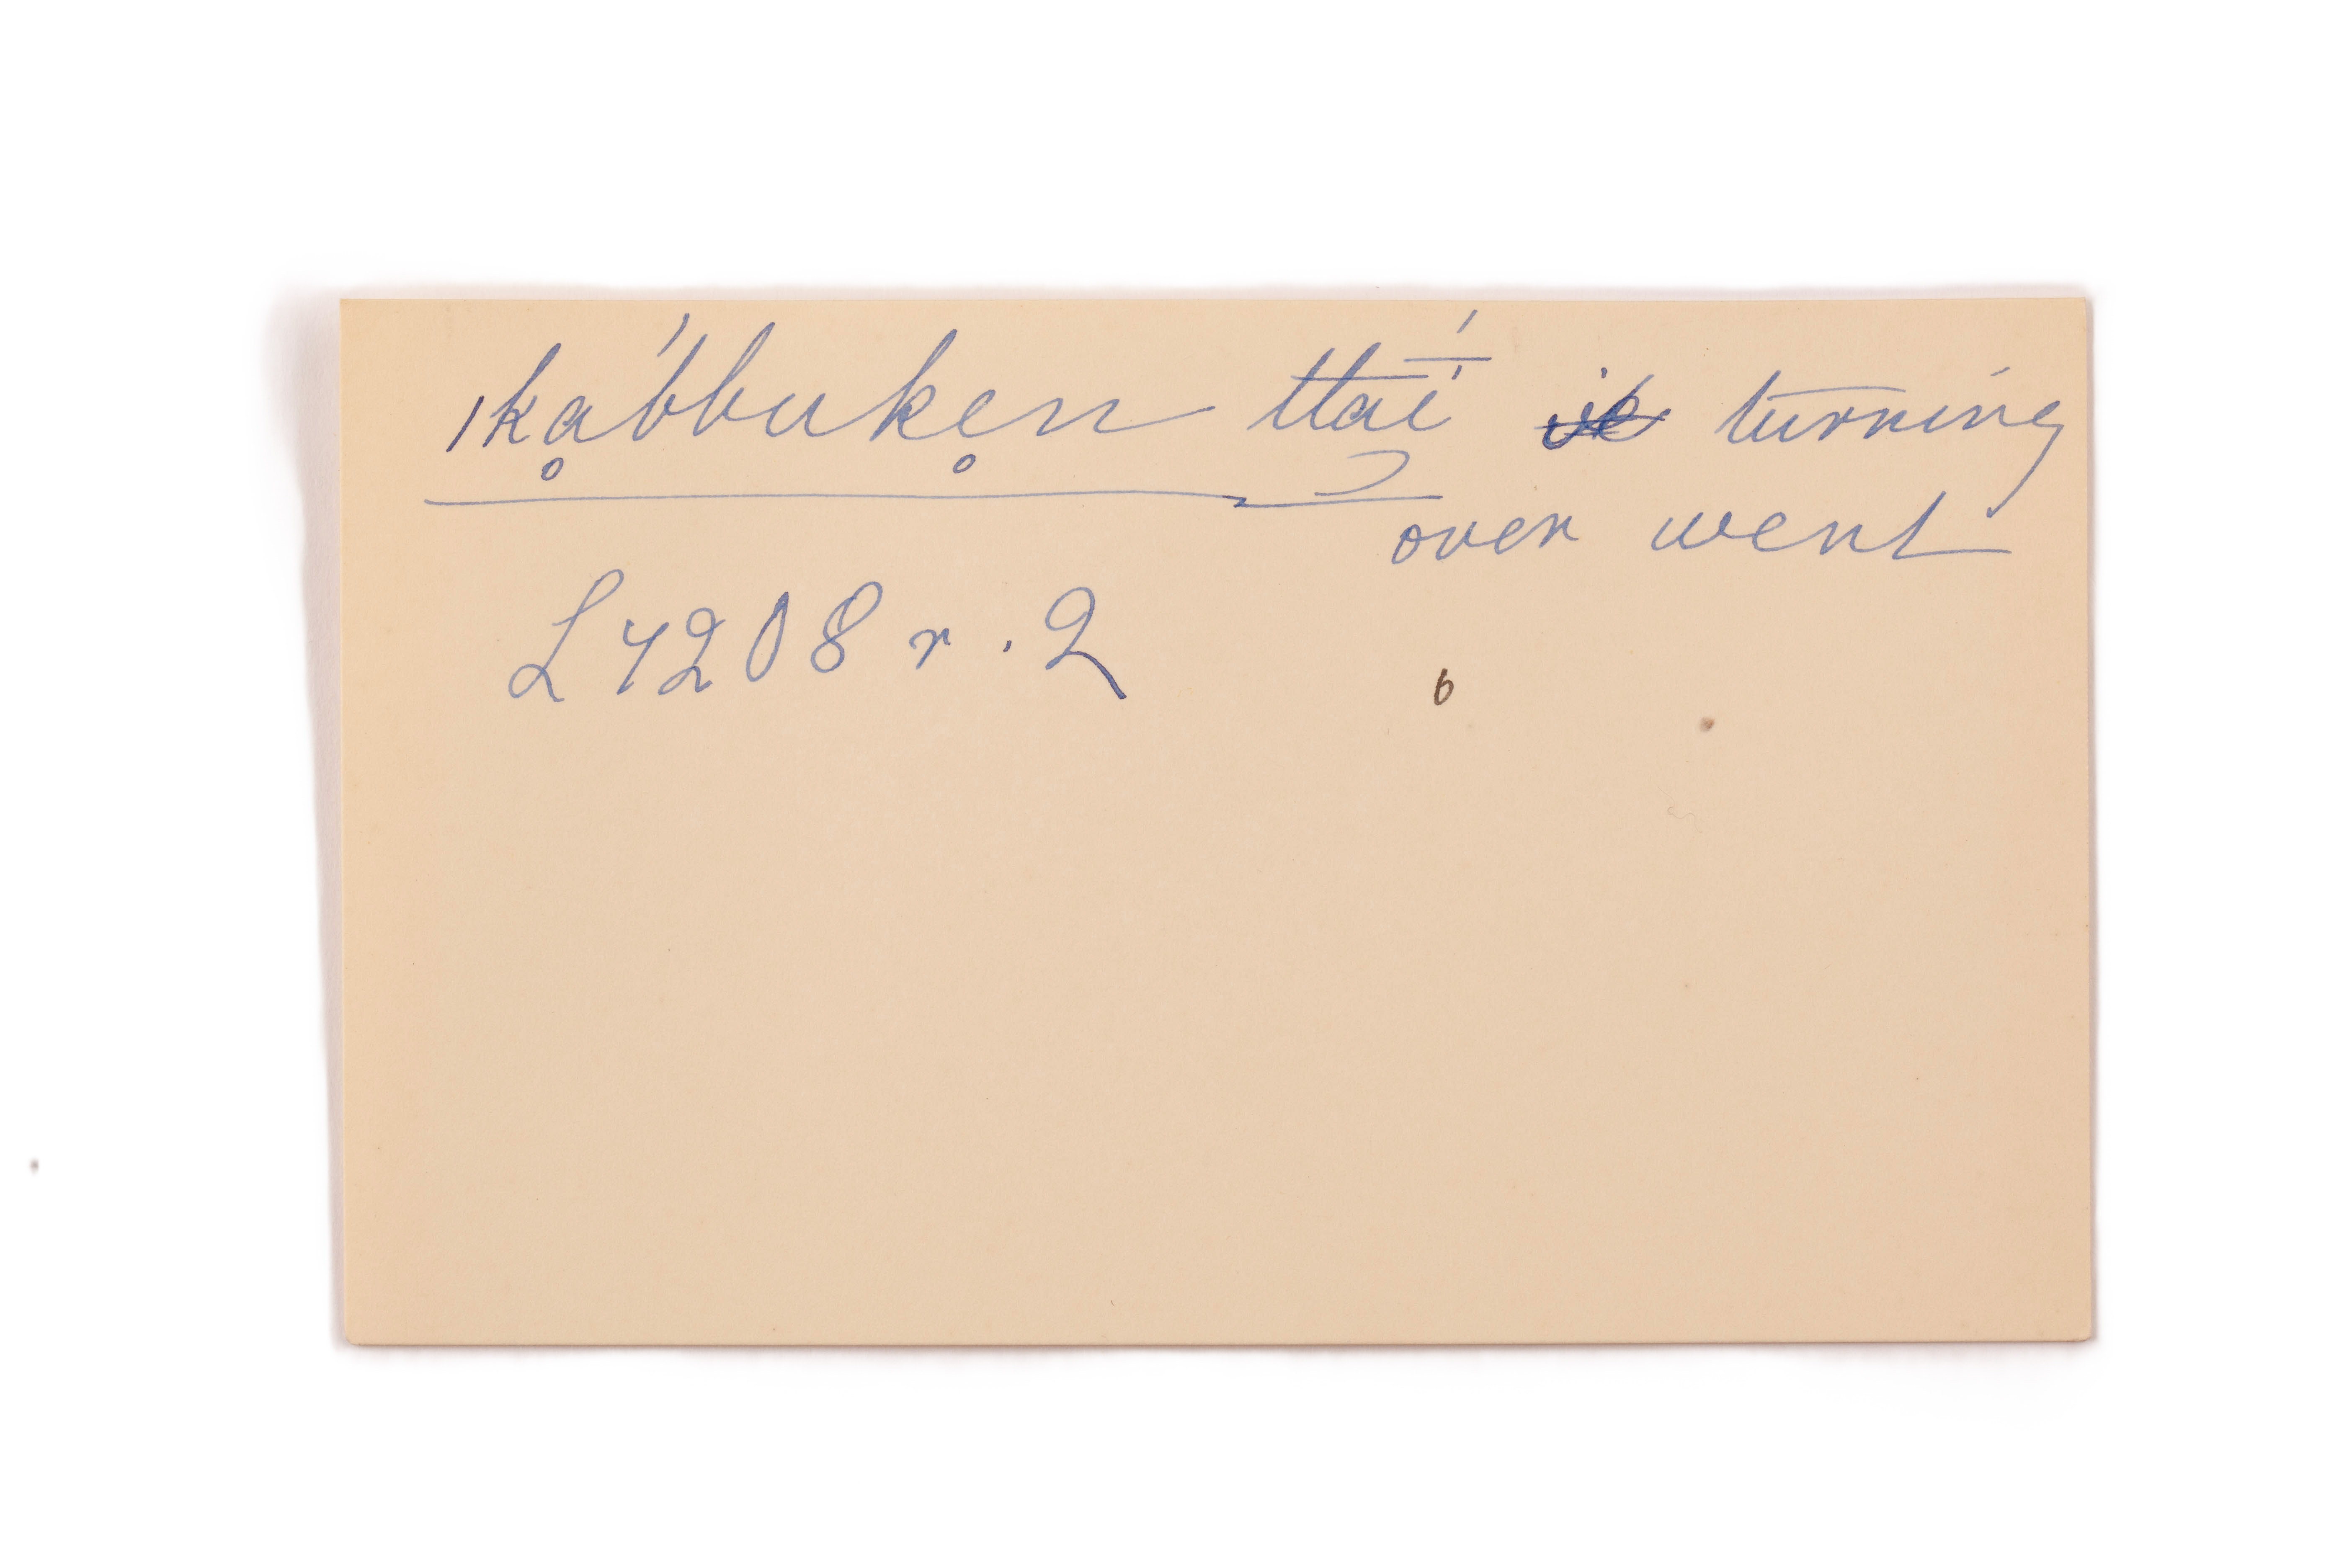 ǀkḁ́bbuke̥n ttaí̄ turning
over went
L 4208 r. 2